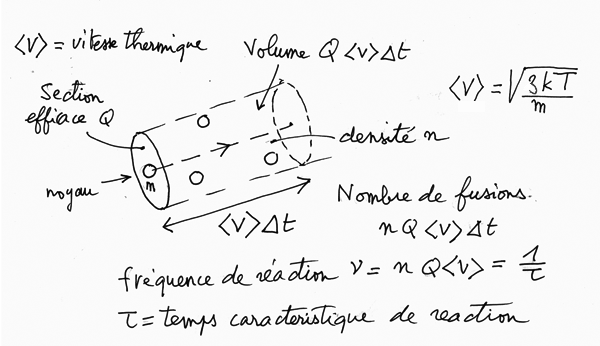 ⟨V⟩ = vitesse thermique
Volume Q ⟨V⟩ Δt
Section
efficace Q
⟨V⟩ = √(3kT/m)
densité n
noyau
m
⟨V⟩ Δt
Nombre de fusions.
n Q ⟨V⟩ Δt
fréquence de réaction ν = n Q ⟨V⟩ = 1/τ
τ = temps caracteristique de reaction